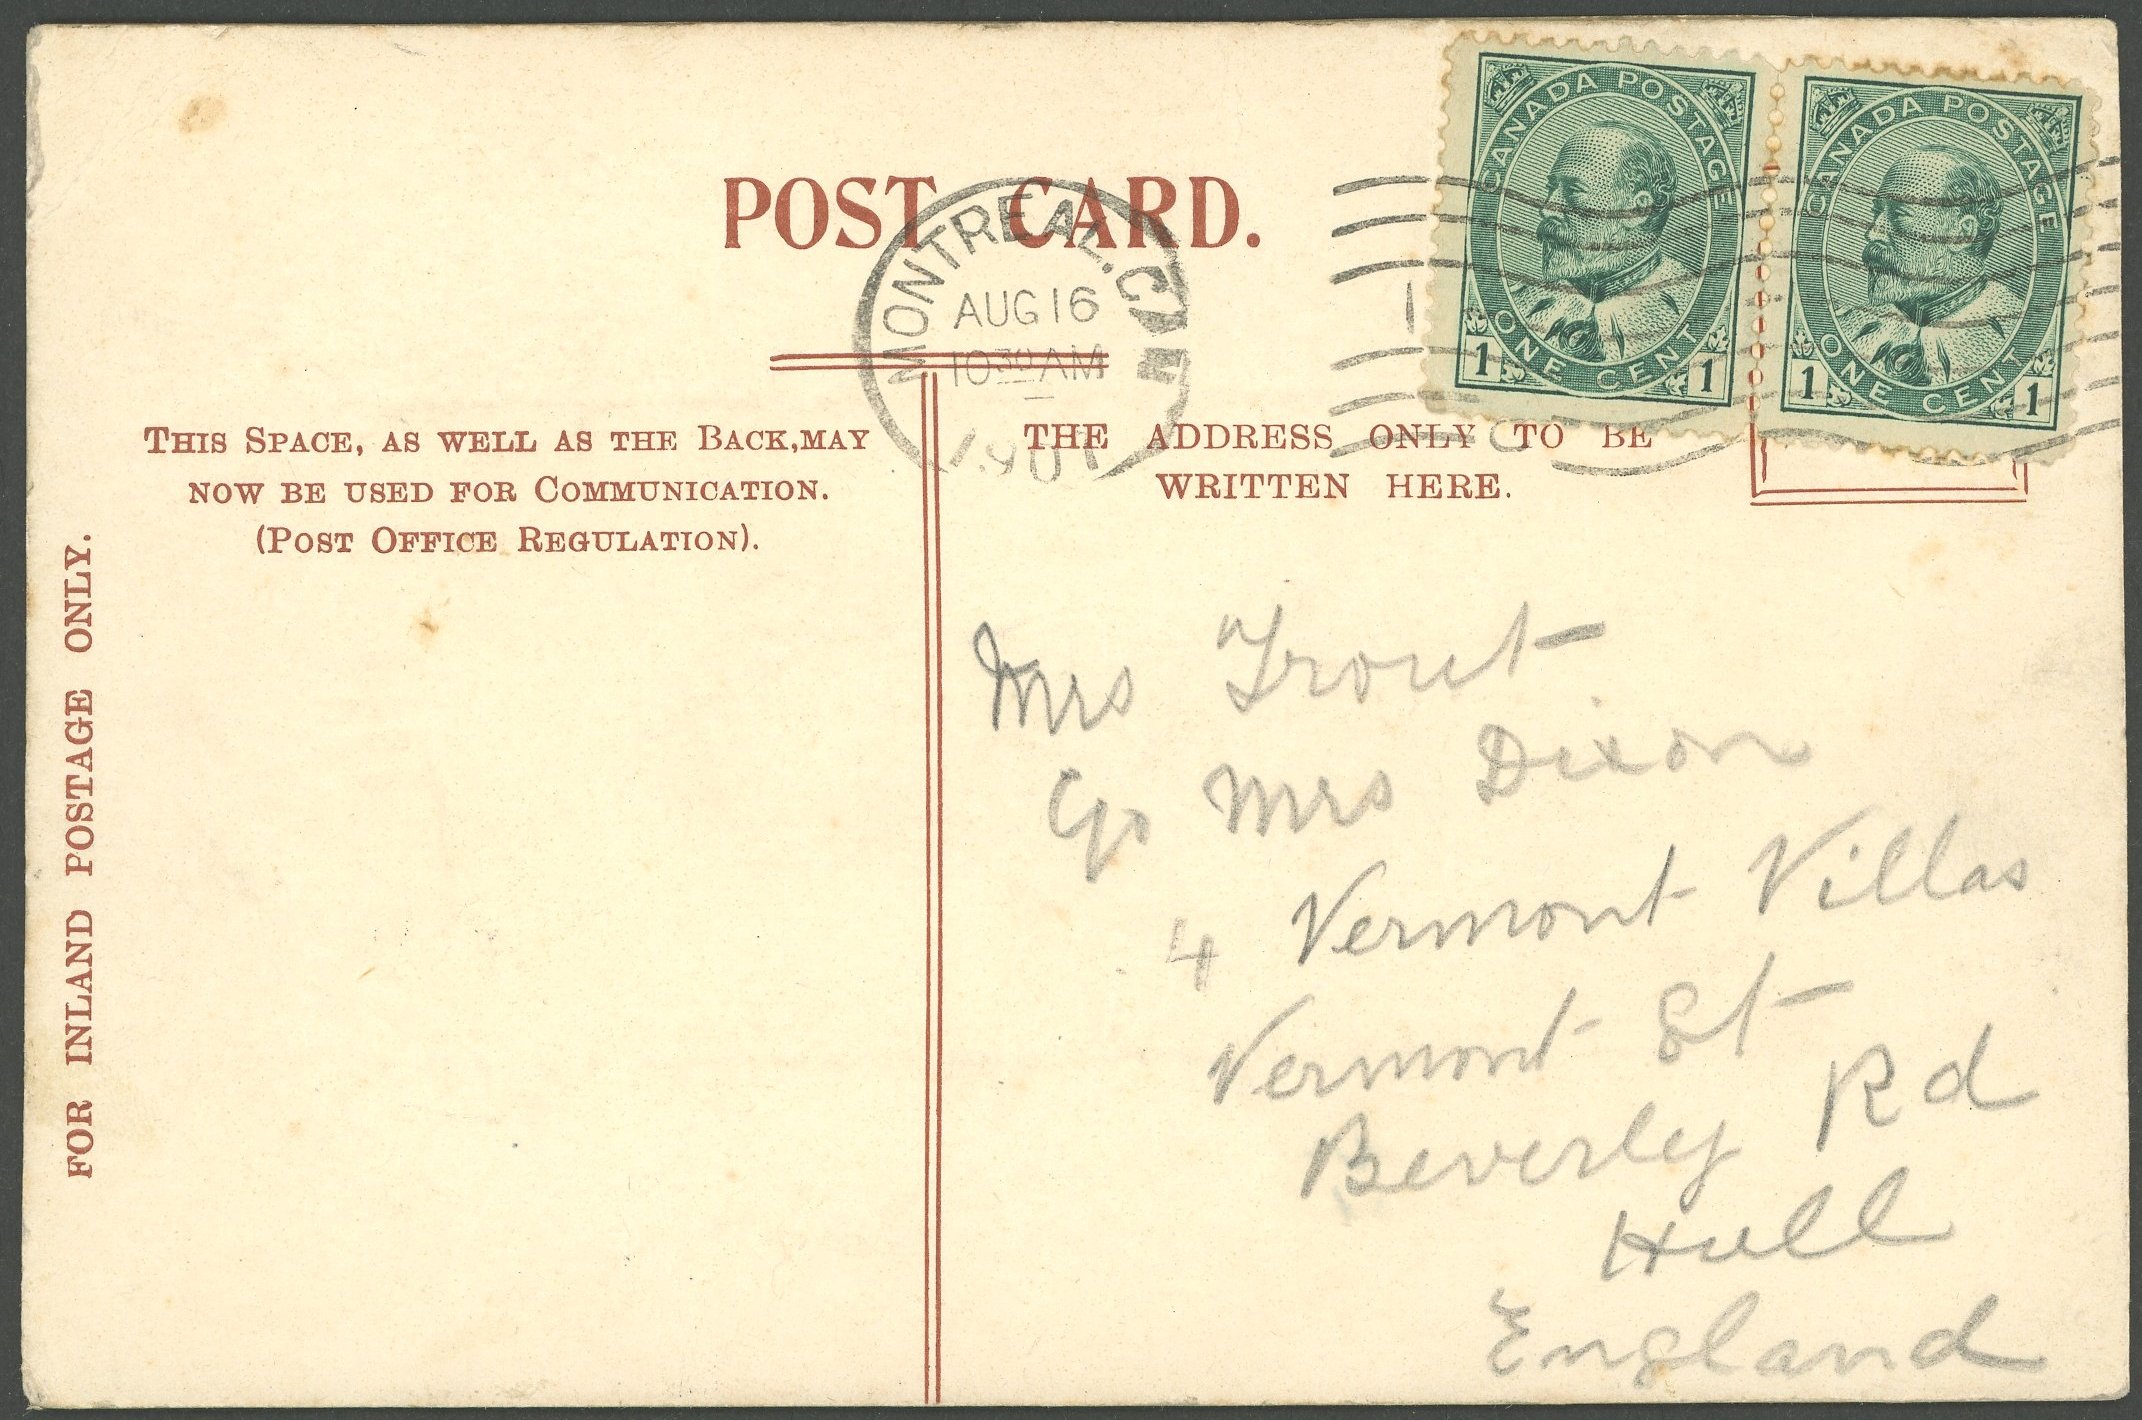 POST CARD.
MONTREAL, CAN
AUG 16
10 30 AM
CANADA POSTAGE
ONE CENT
1 1
CANADA POSTAGE
ONE CENT
1 1
THIS SPACE, AS WELL AS THE BACK, MAY
NOW BE USED FOR COMMUNICATION.
(POST OFFICE REGULATION).
THE ADDRESS ONLY TO BE
WRITTEN HERE.
FOR INLAND POSTAGE ONLY.
Mrs Trout
C/o Mrs Dixon
4 Vermont Villas
Vermont St
Beverly Rd
Hull
England